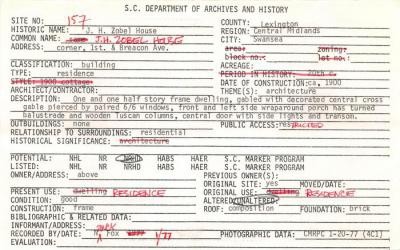 S.C. DEPARTMENT OF ARCHIVES AND HISTORY
SITE NO. 157
COUNTY: Lexington
HISTORIC NAME: "J. H. Zobel House
REGION: Central Midlands
COMMON NAME: same J.H. ZOBEL HOUSE
CITY: Swansea
ADDRESS: corner, 1st. & Breacon Ave.
area: zoning:
block no.: lot no.:
CLASSIFICATION: building
ACREAGE:
TYPE: residence
PERIOD IN HISTORY: 20th c.
STYLE: 1900 cottage
DATE OF CONSTRUCTION: ca. 1900
ARCHITECT/CONTRACTOR:
THEME(S): architecture
DESCRIPTION: One and one half story frame dwelling, gabled with decorated central cross
gable pierced by paired 6/6 windows, front and left side wraparound porch has turned
balustrade and wooden Tuscan columns, central door with side lights and transom.
OUTBUILDINGS: none
PUBLIC ACCESS: RESTRICTED
RELATIONSHIP TO SURROUNDINGS: residential
HISTORICAL SIGNIFICANCE: architecture
POTENTIAL: NHL NR NRHD HABS HAER S.C. MARKER PROGRAM
LISTED: NHL NR NRHD HABS HAER S.C. MARKER PROGRAM
OWNER/ADDRESS: above
PREVIOUS OWNER(S):
ORIGINAL SITE: yes MOVED/DATE:
PRESENT USE: dwelling RESIDENCE
ORIGINAL USE: dwelling RESIDENCE
CONDITION: good
ALTERED/UNALTERED:
CONSTRUCTION: frame
ROOF: composition FOUNDATION: brick
BIBLIOGRAPHIC & RELATED DATA:
INFORMANT:
RECORDED BY/DATE: Fox 1/77
PHOTOGRAPHIC DATA: CMRPC 1-20-77 (4C1)
EVALUATION: